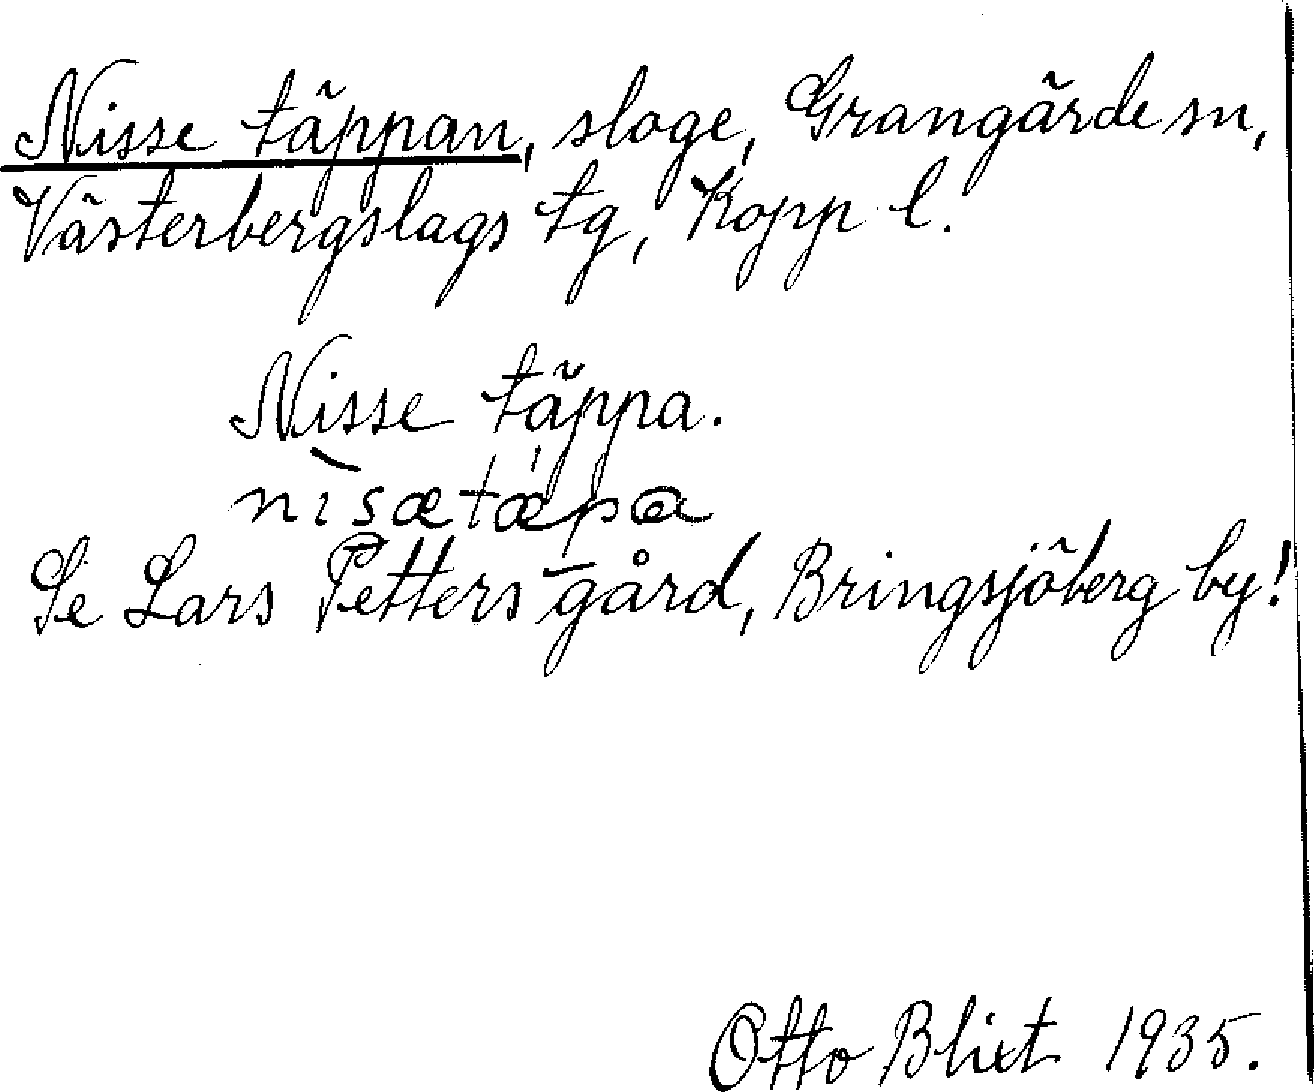 Nisse täppan, sloge, Grangärde sn,
Västerbergslags tg, Kopp l.
Nisse täppa.
nìsætæ̀pa
Se Lars Petters gård, Bringsjöberg by!
Otto Blixt 1935.